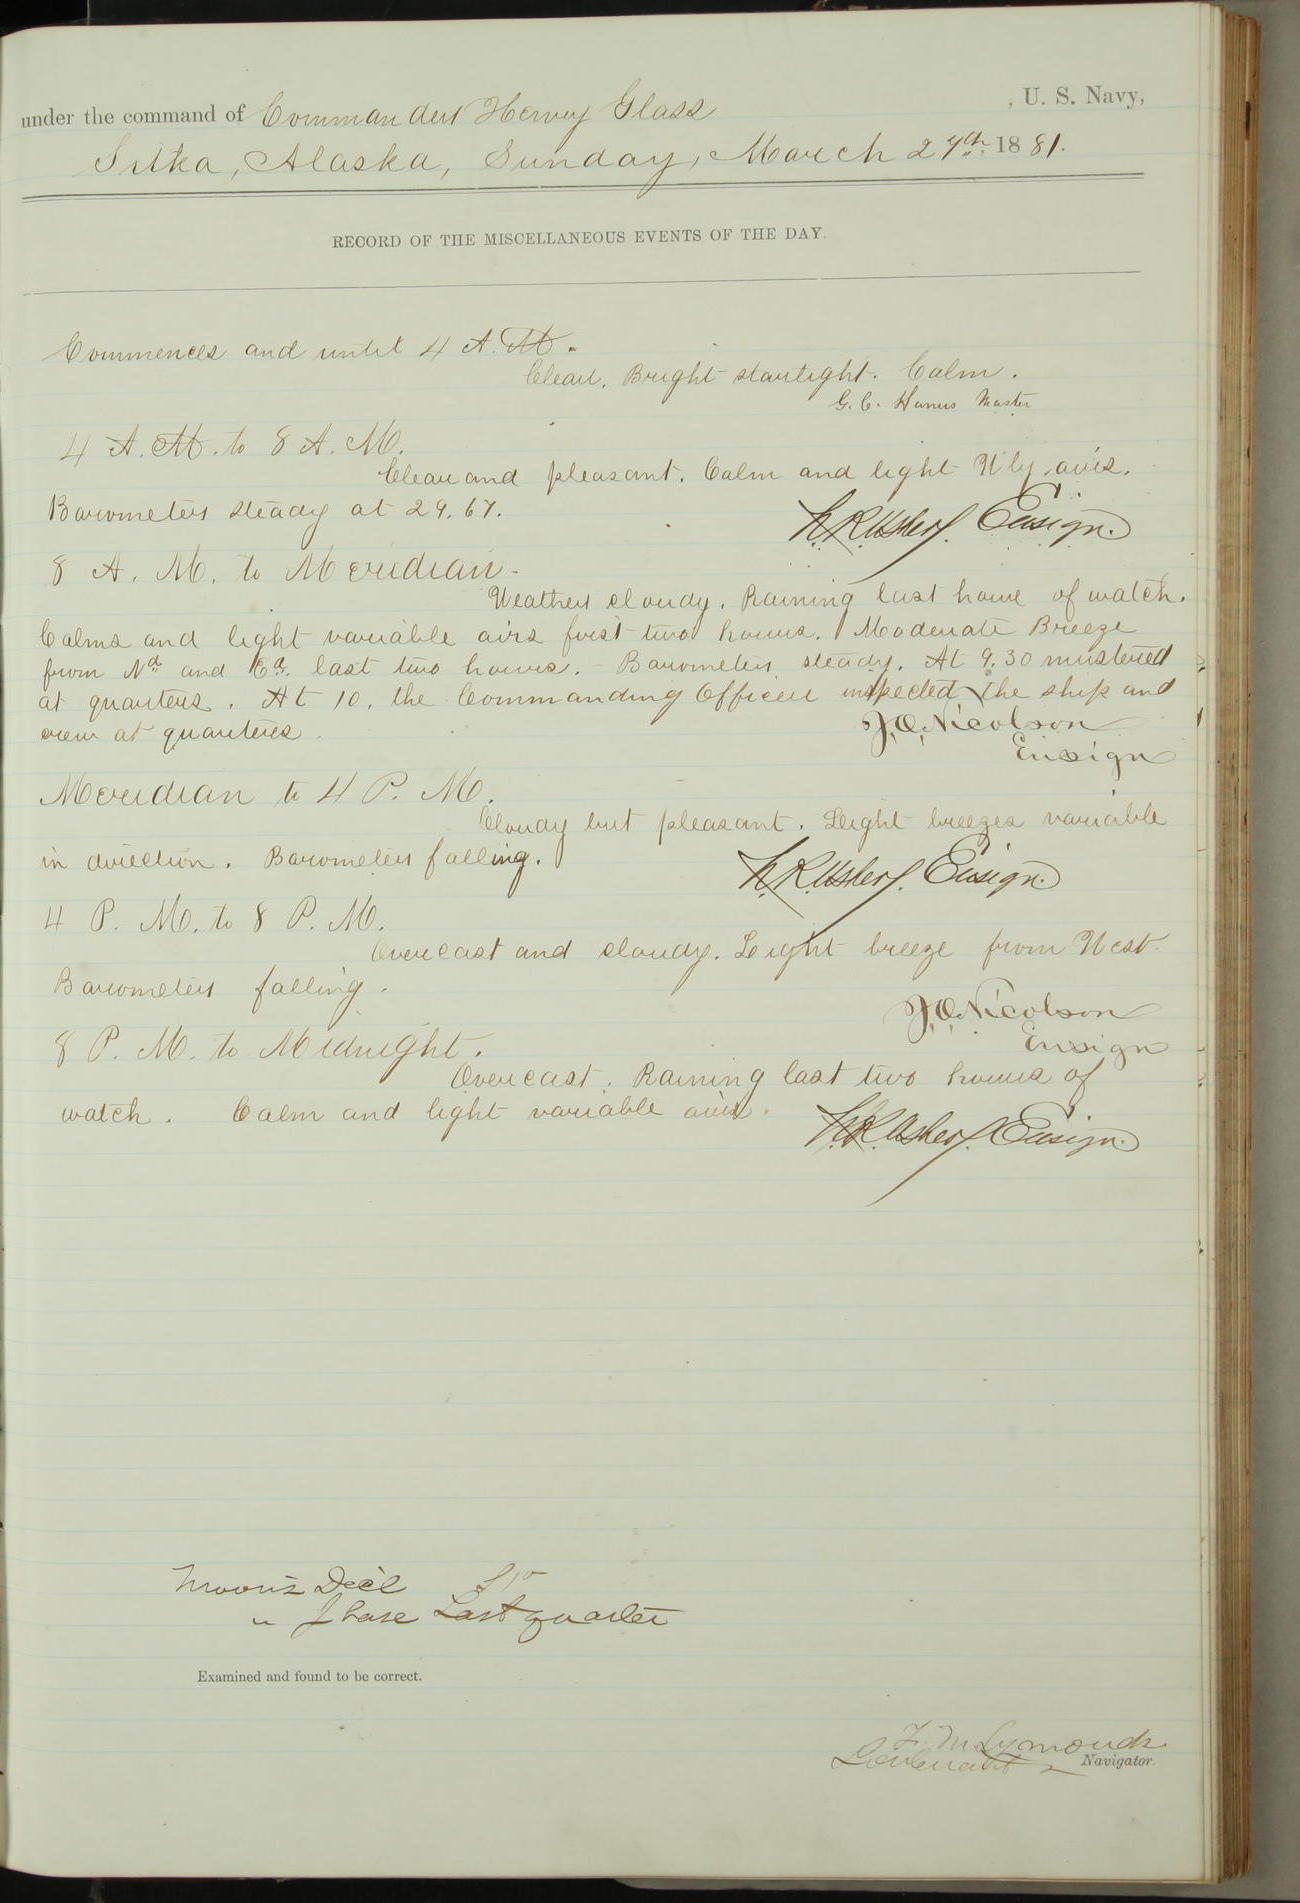 under the command of Commander Henry Glass , U. S. Navy,
Sitka, Alaska, Sunday, March 27th, 1881.
RECORD OF THE MISCELLANEOUS EVENTS OF THE DAY.
Commences and until 4 A. M.
Clear. Bright starlight. Calm.
G. C. Hanus Master
4 A. M. to 8 A. M.
Clear and pleasant. Calm and light N'ly airs.
Barometer steady at 29.67.
Ensign.
8 A. M. to Meridian.
Weather cloudy. Raining last hour of watch.
Calms and light variable airs first two hours. Moderate Breeze
from Nd. and Ed. last two hours. - Barometer steady. At 9.30 mustered
at quarters. At 10, the Commanding Officer inspected the ship and
crew at quarters.
J. O. Nicolson
Ensign
Meridian to 4 P. M.
Cloudy but pleasant. Light breezes variable
in direction. Barometer falling.
Ensign.
4 P. M. to 8 P. M.
Overcast and cloudy. Light breeze from West
Barometer falling.
J. O. Nicolson
Ensign
8 P. M. to Midnight.
Overcast. Raining last two hours of
watch. Calm and light variable airs.
Ensign.
Moon's Decl
" Phase Last quarter
Examined and found to be correct.
F. M. Symonds
Lieutenant Navigator.